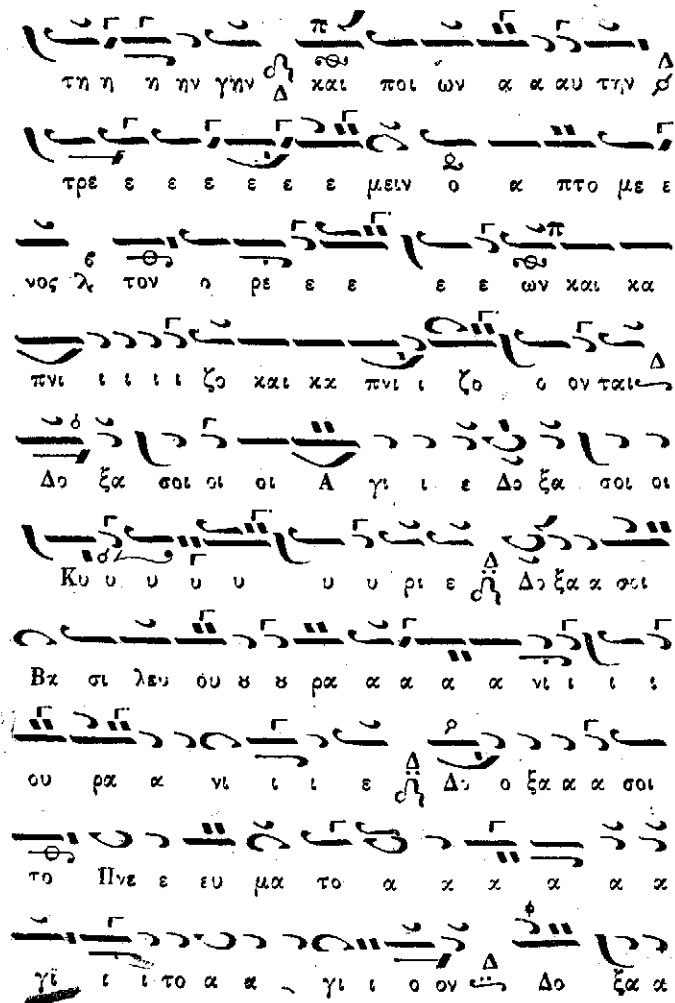 τη η η ην γην και ποι ων α α αυ την
τρε ε ε ε ε ε ε μειν ο α πτο με ε
νος τον ο ρε ε ε ε ε ων και κα
πνι ι ι ι ι ζο και κα πνι ι ζο ο ον ται
Δο ξα σοι οι οι Α γι ι ε Δο ξα σοι οι
Κυ υ υ υ υ υ υ ρι ε Δο ξα α σοι
Βα σι λευ ου ȣ ȣ ρα α α α α νι ι ι ι
ου ρα α νι ι ι ε Δο ο ξα α α σοι
το Πνε ε ευ μα το α α α α α α
γϊ ι ι το α α γι ι ο ον Δο ξα α